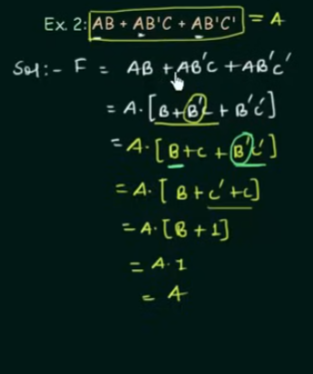 Ex. 2: AB + AB'C + AB'C' = A
Sol:- F = AB + AB'C + AB'C'
= A·[B+B'C + B'C']
= A·[B+C + B'C']
= A·[B+C'+C]
= A·[B+1]
= A·1
= A